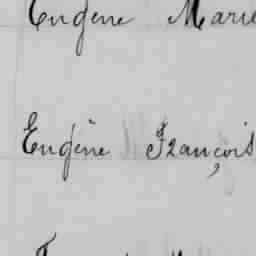 Eugène Marie
Eugène François